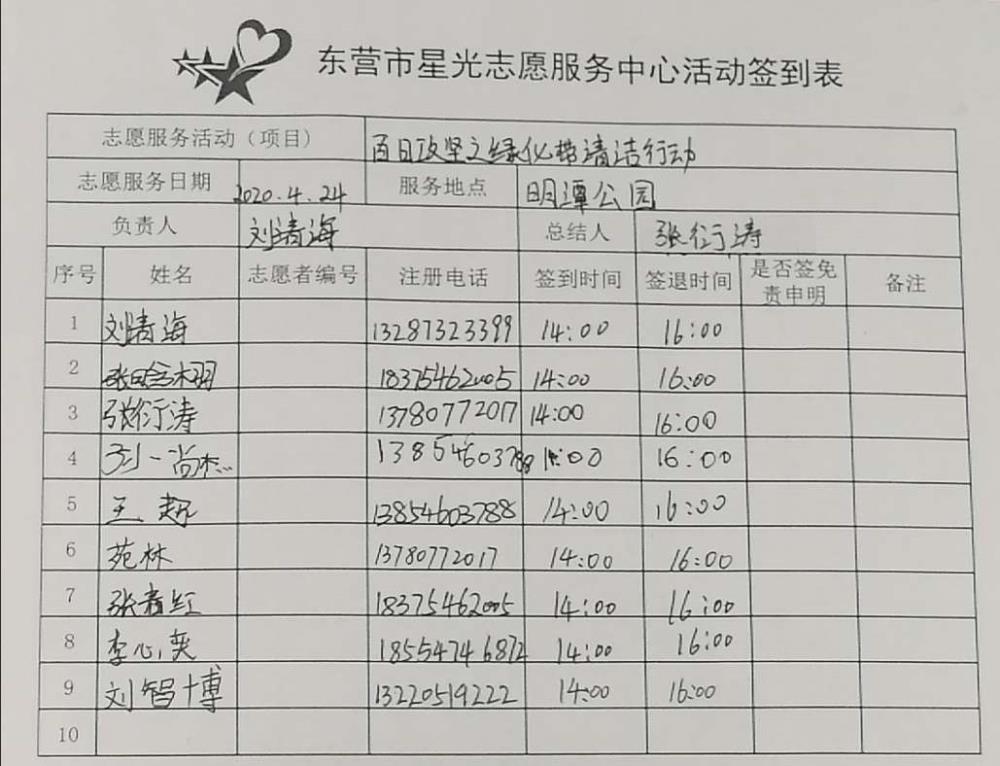 东营市星光志愿服务中心活动签到表
志愿服务活动（项目） 百日攻坚之绿化带清洁行动
志愿服务日期 2020.4.24 服务地点 明潭公园
负责人 刘清海 总结人 张衍涛
序号 姓名 志愿者编号 注册电话 签到时间 签退时间 是否签免责申明 备注
1 刘清海 13287323399 14:00 16:00
2 18375462005 14:00 16:00
3 张衍涛 13780772017 14:00 16:00
4 13854603788 14:00 16:00
5 王超 13854603788 14:00 16:00
6 苑林 13780772017 14:00 16:00
7 张春红 18375462005 14:00 16:00
8 李心奕 18554746872 14:00 16:00
9 刘智博 13220519222 14:00 16:00
10